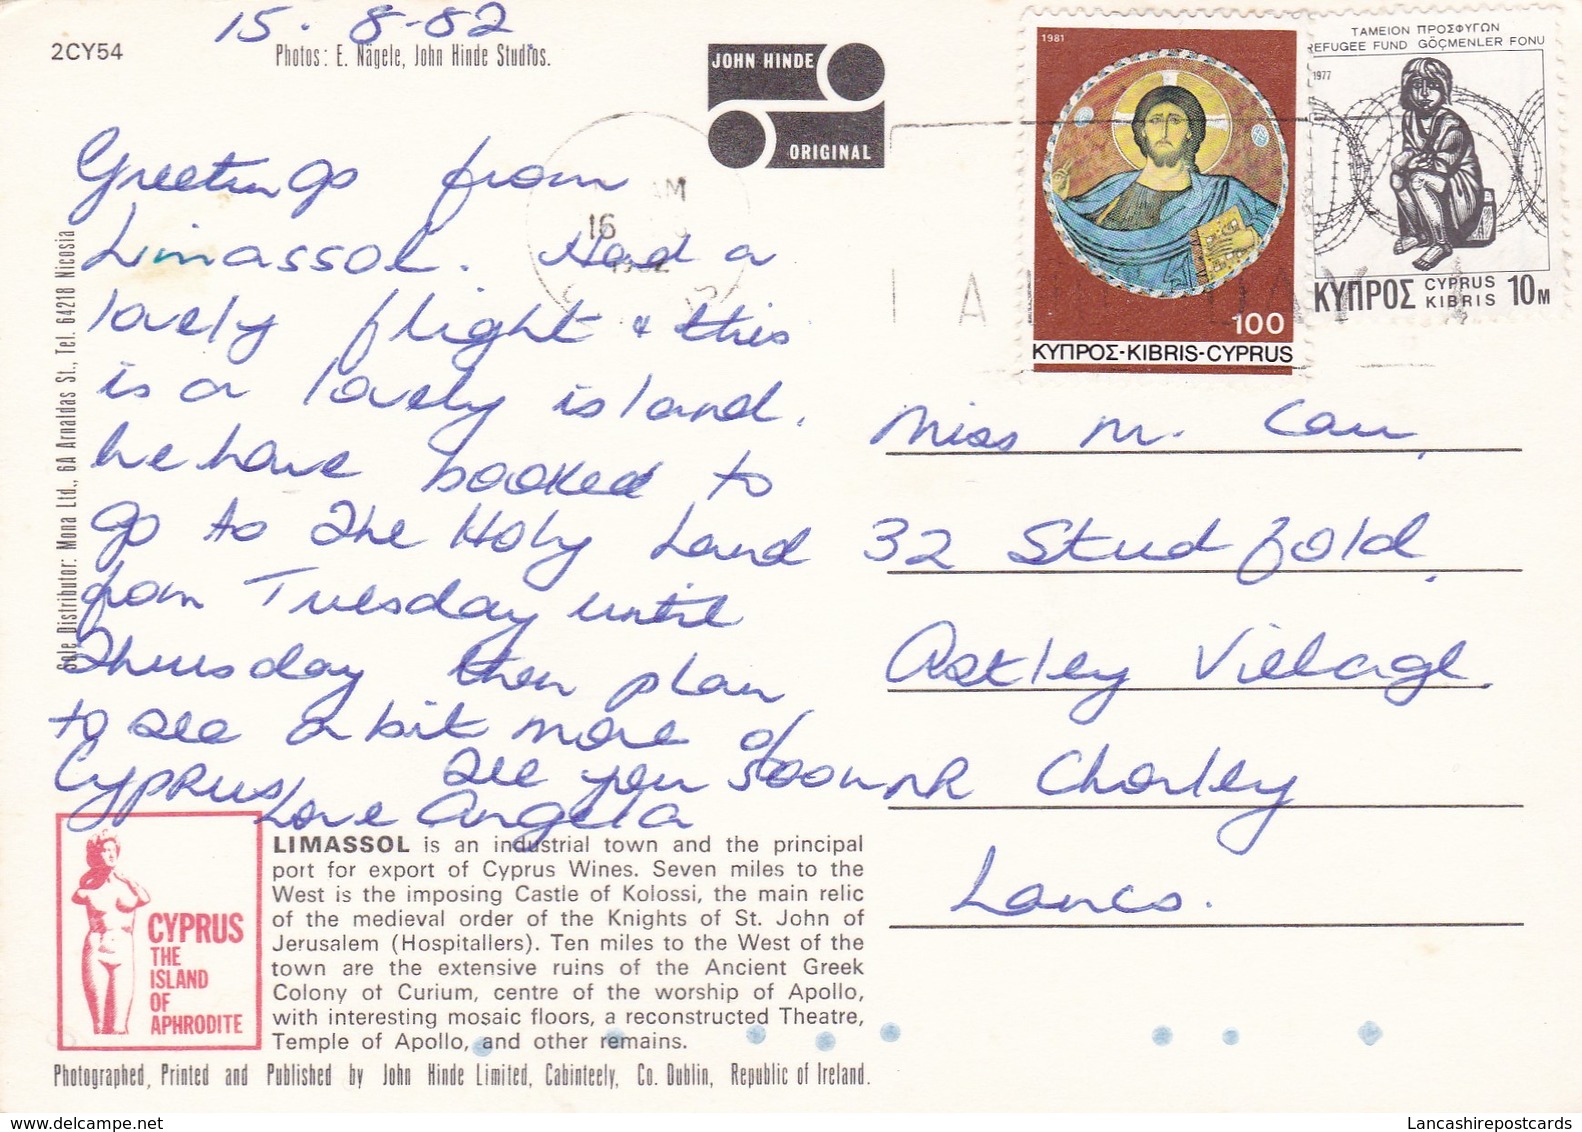 15.8-82.
2CY54
Photos: E. Nägele, John Hinde Studios.
JOHN HINDE
ORIGINAL
1981
100
ΚΥΠΡΟΣ-KIBRIS-CYPRUS
ΤΑΜΕΙΟΝ ΠΡΟΣΦΥΓΩΝ
REFUGEE FUND GÖÇMENLER FONU
1977
ΚΥΠΡΟΣ CYPRUS KIBRIS 10M
AM
16
Greetings from
Limassol. Had a
lovely flight & this
is a lovely island.
We have booked to
go to The Holy Land
from Tuesday until
Thursday then plan
to see a bit more of
Cyprus. See you soon
Love Angela
Miss M. Carr,
32 Studfold,
Astley Village,
NR Chorley
Lancs.
Sole Distributor: Mona Ltd., 6A Arnaldas St., Tel. 64218 Nicosia
CYPRUS
THE
ISLAND
OF
APHRODITE
LIMASSOL is an industrial town and the principal
port for export of Cyprus Wines. Seven miles to the
West is the imposing Castle of Kolossi, the main relic
of the medieval order of the Knights of St. John of
Jerusalem (Hospitallers). Ten miles to the West of the
town are the extensive ruins of the Ancient Greek
Colony of Curium, centre of the worship of Apollo,
with interesting mosaic floors, a reconstructed Theatre,
Temple of Apollo, and other remains.
Photographed, Printed and Published by John Hinde Limited, Cabinteely, Co. Dublin, Republic of Ireland.
Lancashirepostcards